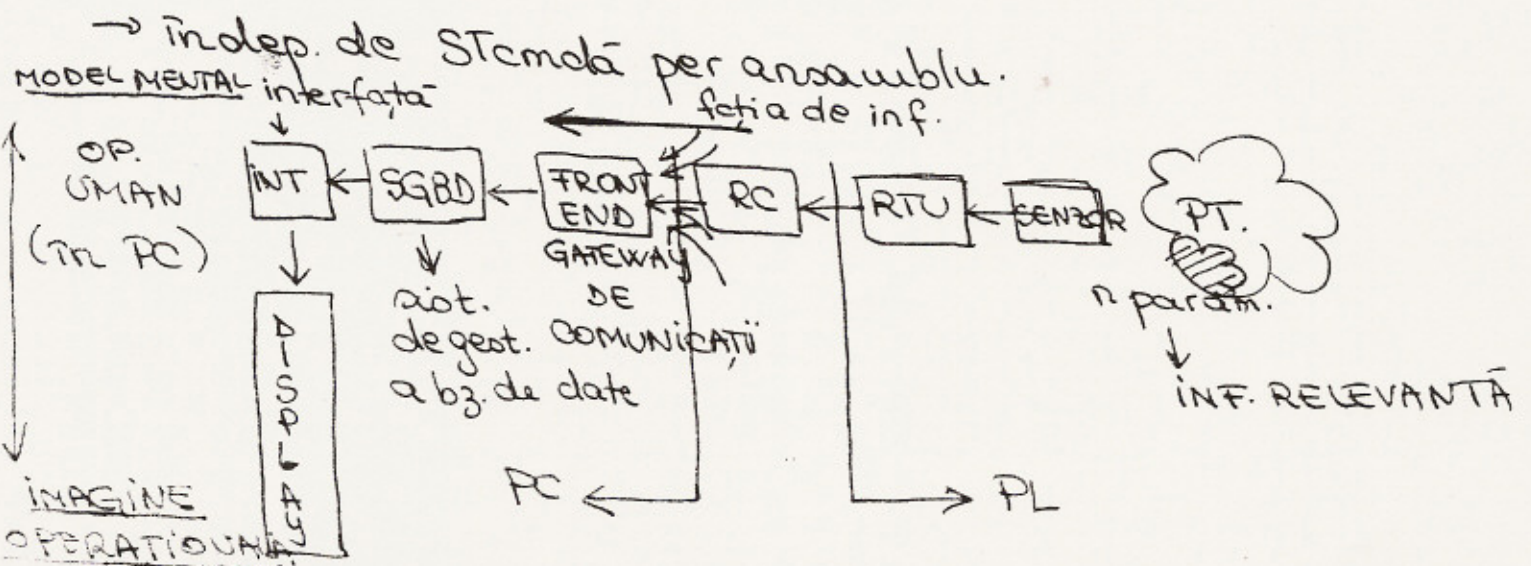 → îndep. de STcmdă per ansamblu.
MODEL MENTAL
interfață
fcția de inf.
OP.
UMAN
(în PC)
INT
SGBD
FRONT
END
RC
RTU
SENZOR
PT.
GATEWAY
DE
COMUNICAȚII
sist.
de gest.
a bz. de date
n param.
INF. RELEVANTĂ
DISPLAY
PC
PL
IMAGINE
OPERAȚIONALĂ